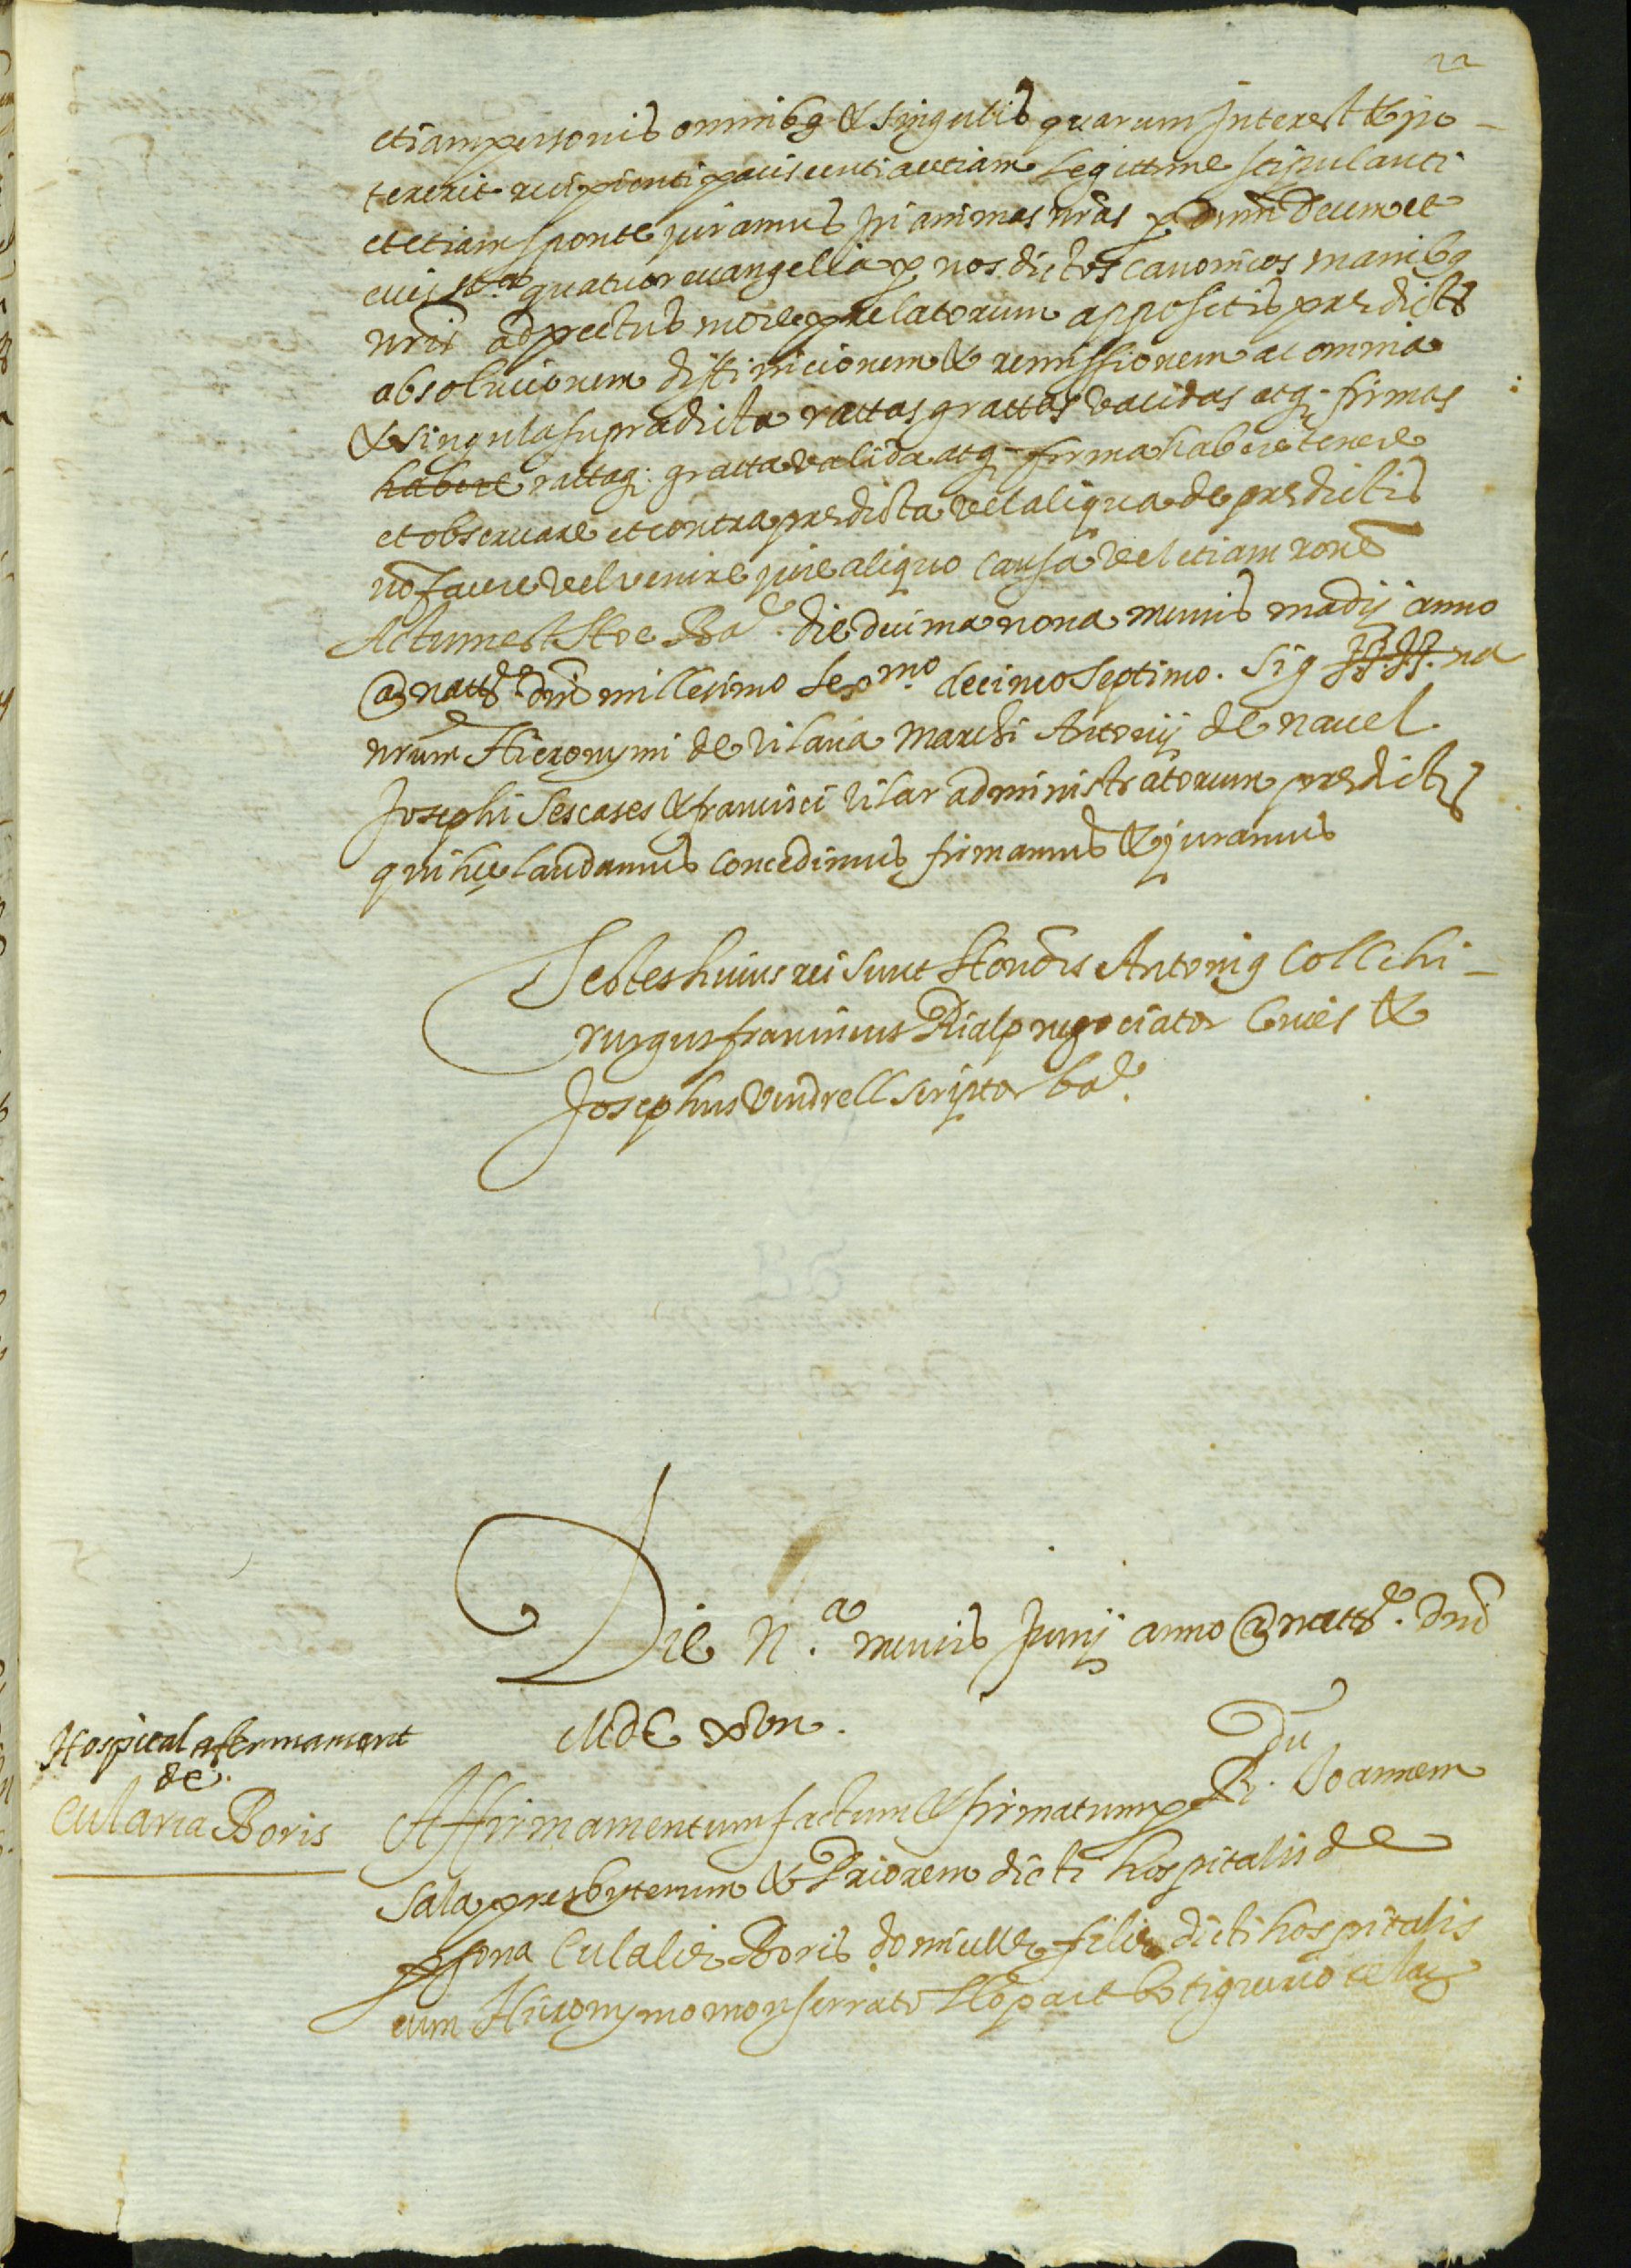 22
etiam personis omnibq & singulis quarum interest & po-
tererit recipienti paciscenti ac etiam legittime stipulanti
et etiam sponte juramus in animas nras p dnm deum et
eius sta quatuor evangelia p nos dictos canonicos manibq
nris ad pectus more prelatorum appositis predictā
absolucionem diffinicionem & remissionem ac omnia
& singula supradicta rattas grattas validas atq firmas
habere rattaq gratta valida atq firma habere tenere
et observare et contra predicta vel aliqua de predictis
nō facere vel venire jure aliquo causa vel etiam rone
Actum est hoc Bar. die decima nona mensis madij anno
a natte dni millesimo sexmo decimo septimo. Sig ffff. na
nrum Hieronymi de vilana Marchi Antonij de navel
Josephi Sescases & francisci vilar administratorum predictor
qui hec laudamus concedimus firmamus & juramus
Testes huius rei sunt Honor. Antoniq Coll chi-
rurgus franciscus Rialp negociator Cives &
Josephus Vendrell scriptor bar.
Die n.a mensis Junij anno a natte. Dni
MDC xvii.
Hospital afermament
de
Eularia Boris
Affirmamentum factum & firmatum p Du R. Joannem
Sala presbyterum & Priorem dicti hospitalis de
psona Eulalie Boris domicelle filie dicti hospitalis
cum Hieronymo monserrato botiguerio telaz